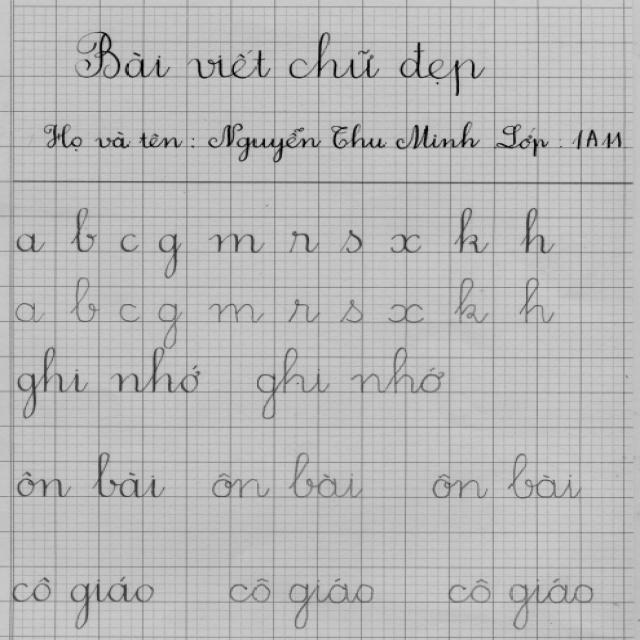 Bài viết chữ đẹp
Họ và tên : Nguyễn Thu Minh Lớp : 1A11
a b c g m r s x k h
a b c g m r s x k h
ghi nhớ ghi nhớ
ôn bài ôn bài ôn bài
cô giáo cô giáo cô giáo